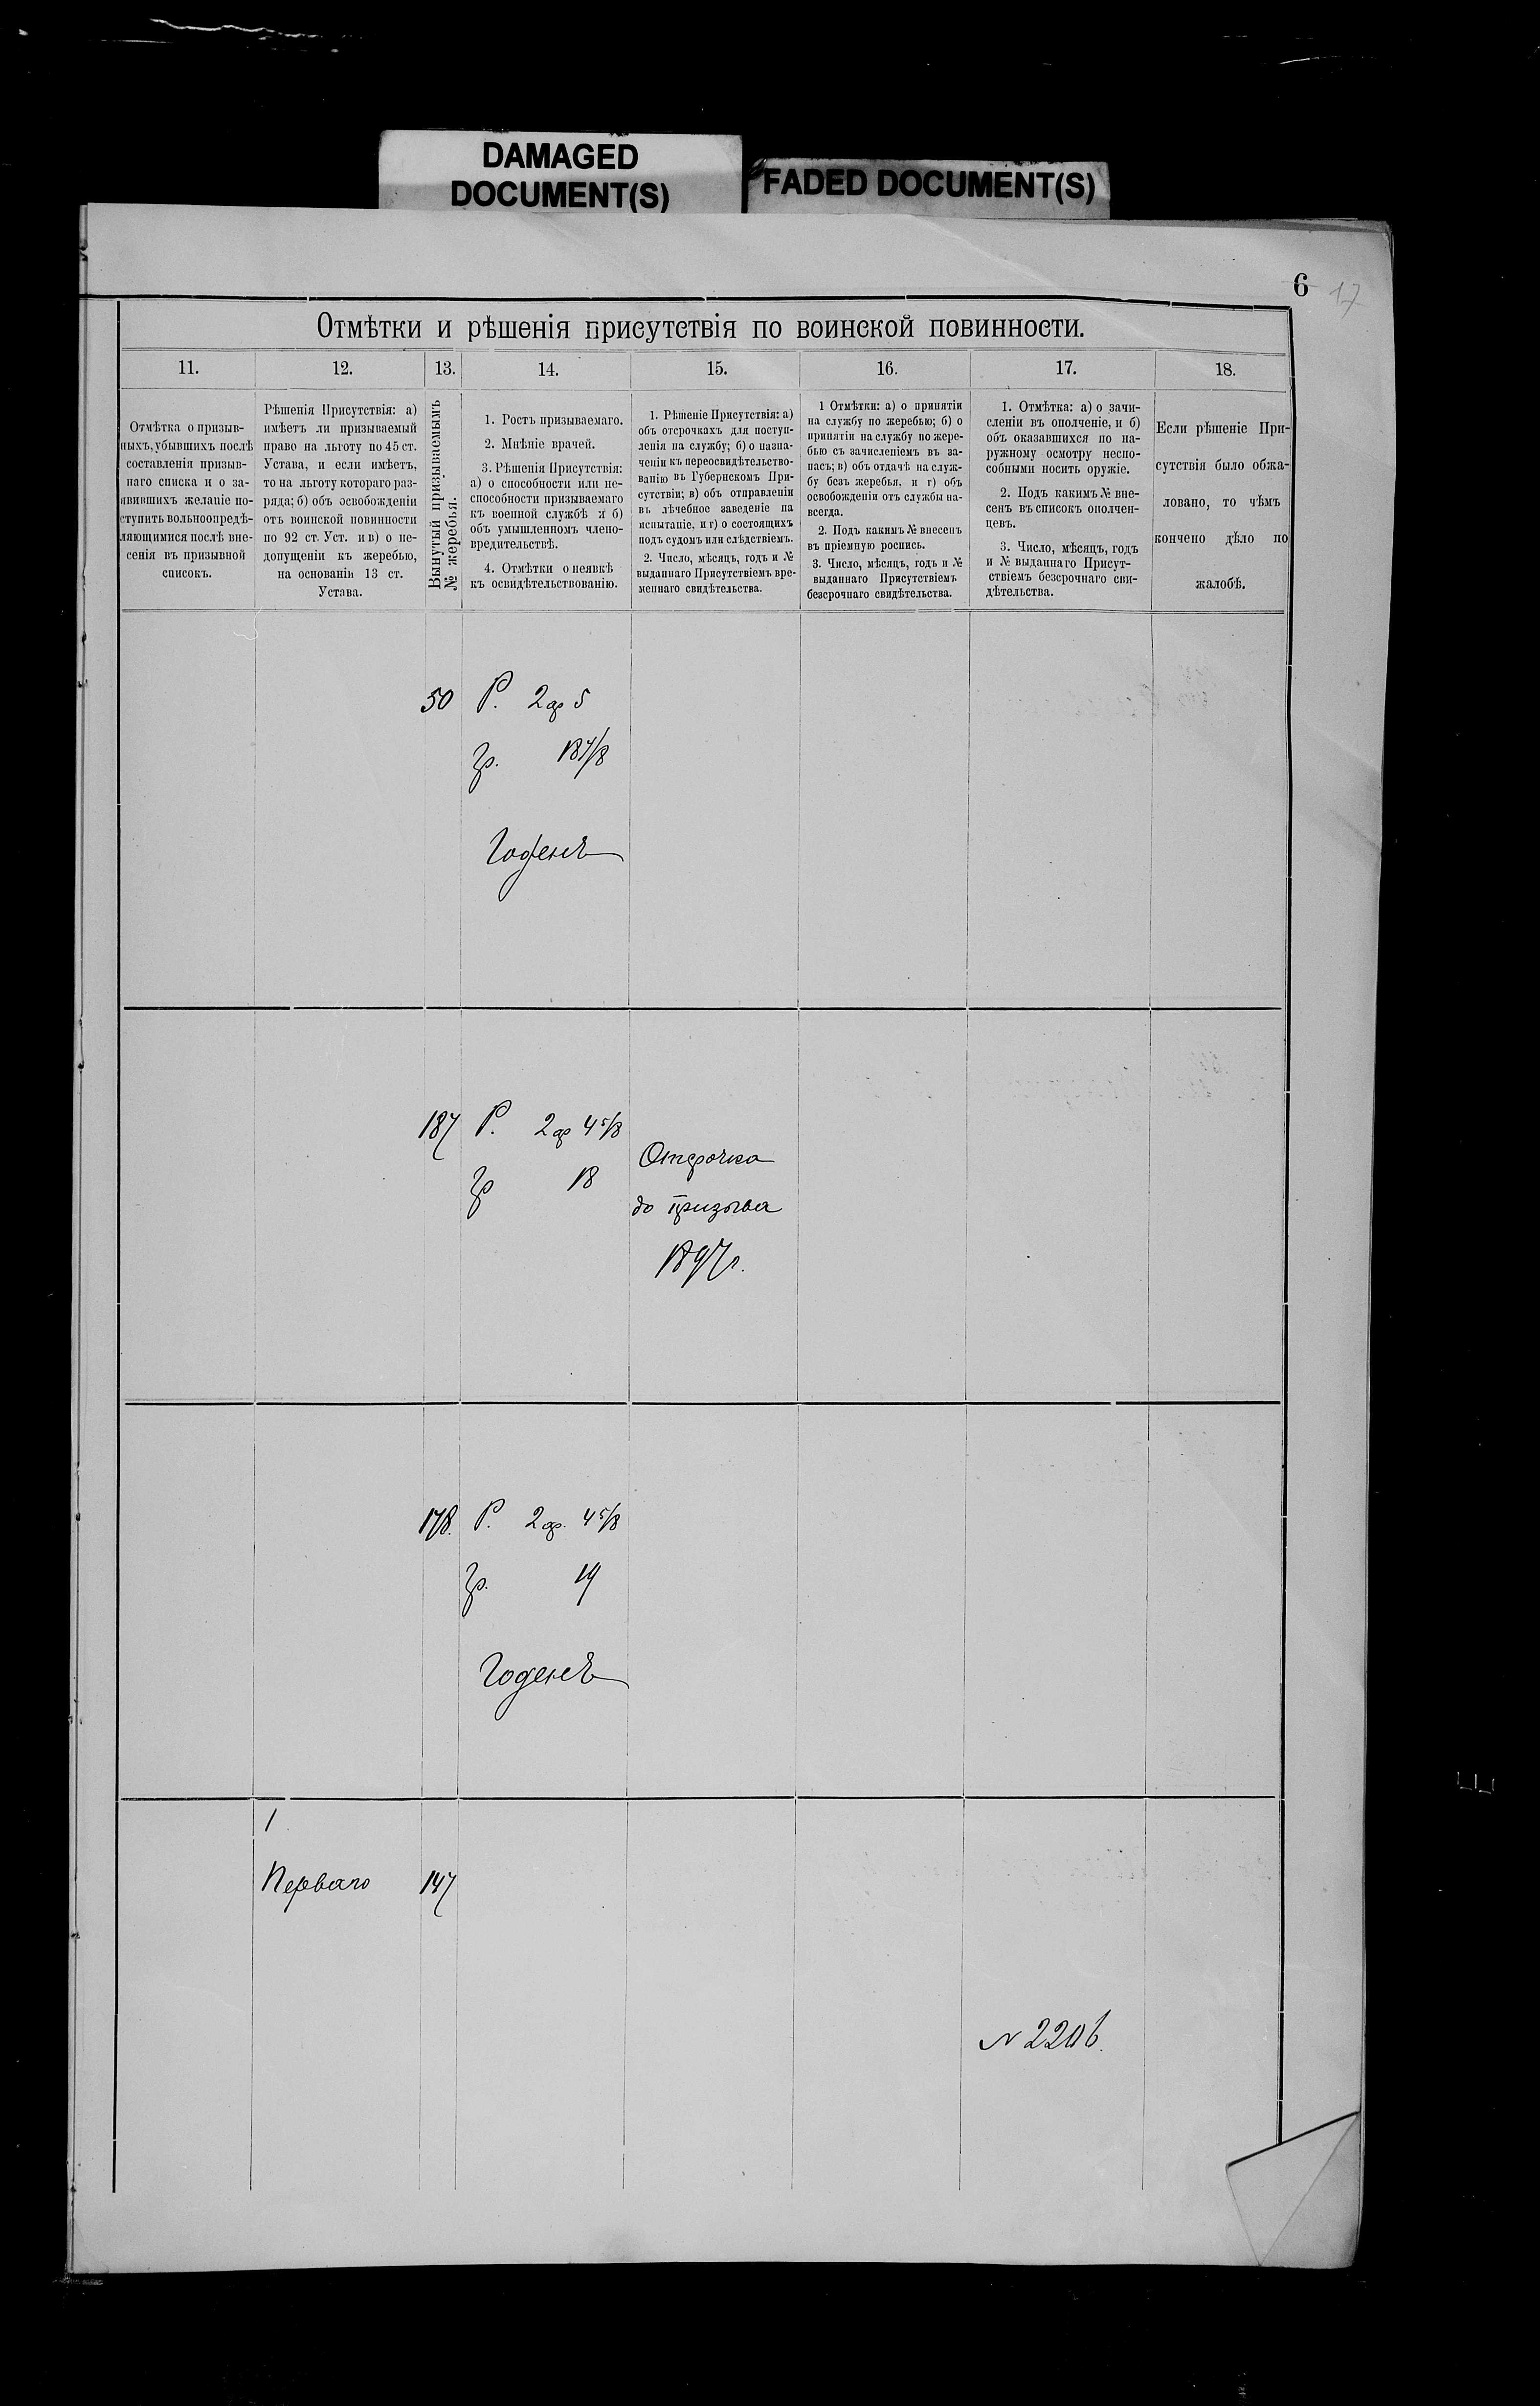 DAMAGED
DOCUMENT(S)
FADED DOCUMENT(S)
6
17
Отмѣтки и рѣшенія присутствія по воинской повинности.
11.
12.
13.
14.
15.
16.
17.
18.
Отмѣтка о призыв-
ныхъ, убывшихъ послѣ
составленія призыв-
наго списка и о за-
явившихъ желаніе по-
ступить вольноопредѣ-
ляющимися послѣ вне-
сенія въ призывной
списокъ.
Рѣшенія Присутствія: а)
имѣетъ ли призываемый
право на льготу по 45 ст.
Устава, и если имѣетъ,
то на льготу котораго раз-
ряда; б) объ освобожденіи
отъ воинской повинности
по 92 ст. Уст. и в) о не-
допущеніи къ жеребью,
на основаніи 13 ст.
Устава.
Вынутый призываемымъ
№ жеребья.
1. Ростъ призываемаго.
2. Мнѣніе врачей.
3. Рѣшенія Присутствія:
а) о способности или не-
способности призываемаго
къ военной службѣ и б)
объ умышленномъ члено-
вредительствѣ.
4. Отмѣтки о неявкѣ
къ освидѣтельствованію.
1. Рѣшеніе Присутствія: а)
объ отсрочкахъ для поступ-
ленія на службу; б) о назна-
ченіи къ переосвидѣтельство-
ванію въ Губернскомъ При-
сутствіи; в) объ отправленіи
въ лѣчебное заведеніе на
испытаніе, и г) о состоящихъ
подъ судомъ или слѣдствіемъ.
2. Число, мѣсяцъ, годъ и №
выданнаго Присутствіемъ вре-
меннаго свидѣтельства.
1 Отмѣтки: а) о принятіи
на службу по жеребью; б) о
принятіи на службу по жере-
бью съ зачисленіемъ въ за-
пасъ; в) объ отдачѣ на служ-
бу безъ жеребья. и г) объ
освобожденіи отъ службы на-
всегда.
2. Подъ какимъ № внесенъ
въ пріемную роспись.
3. Число, мѣсяцъ, годъ и №
выданнаго Присутствіемъ
безсрочнаго свидѣтельства.
1. Отмѣтка: а) о зачи-
сленіи въ ополченіе, и б)
объ оказавшихся по на-
ружному осмотру неспо-
собными носить оружіе.
2. Подъ какимъ № вне-
сенъ въ списокъ ополчен-
цевъ.
3. Число, мѣсяцъ, годъ
и № выданнаго Присут-
ствіемъ безсрочнаго сви-
дѣтельства.
Если рѣшеніе При-
сутствія было обжа-
ловано, то чѣмъ
кончено дѣло по
жалобѣ.
50 Р. 2 ар 5
Гр. 18 7/8
Годенъ
187 Р. 2 ар 4 5/8
Гр 18
Отсрочка
до призыва
1897 г.
178. Р. 2 ар. 4 5/8
Гр. 19
Годенъ
1
Перваго 147
№ 2206.